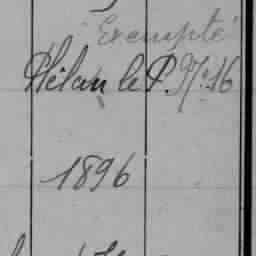 Exempté
Plélan le P. N: 16
1896